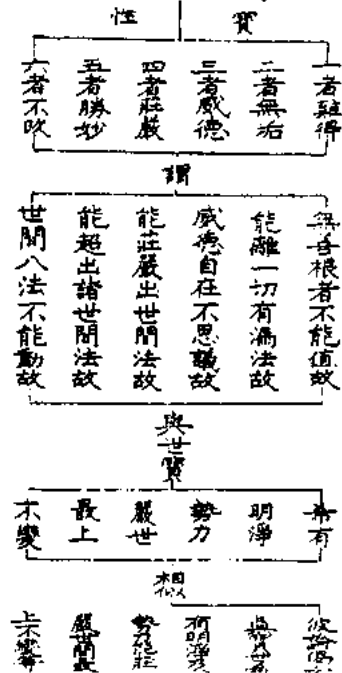 寶性
一者難得
二者無垢
三者威德
四者莊嚴
五者勝妙
六者不改
謂
無善根者不能值故
能離一切有漏法故
威德自在不思議故
能莊嚴出世間法故
能超出諸世間法故
世間八法不能動故
與世寶
希有
明淨
勢力
嚴世
最上
不變
相似
彼論偈
有明淨及
勢力能莊
嚴世間最
上不變等